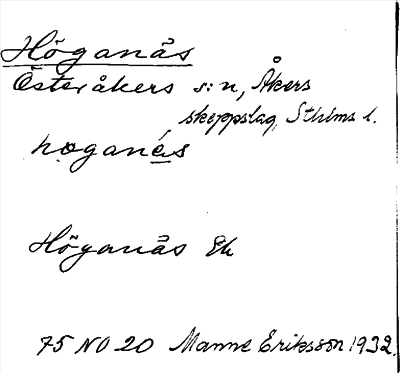 Höganäs
Österåkers s:n, Åkers
skeppslag, Sthlms l.
hɷganés
Höganäs Ek
75 NO 20 Manne Eriksson 1932.